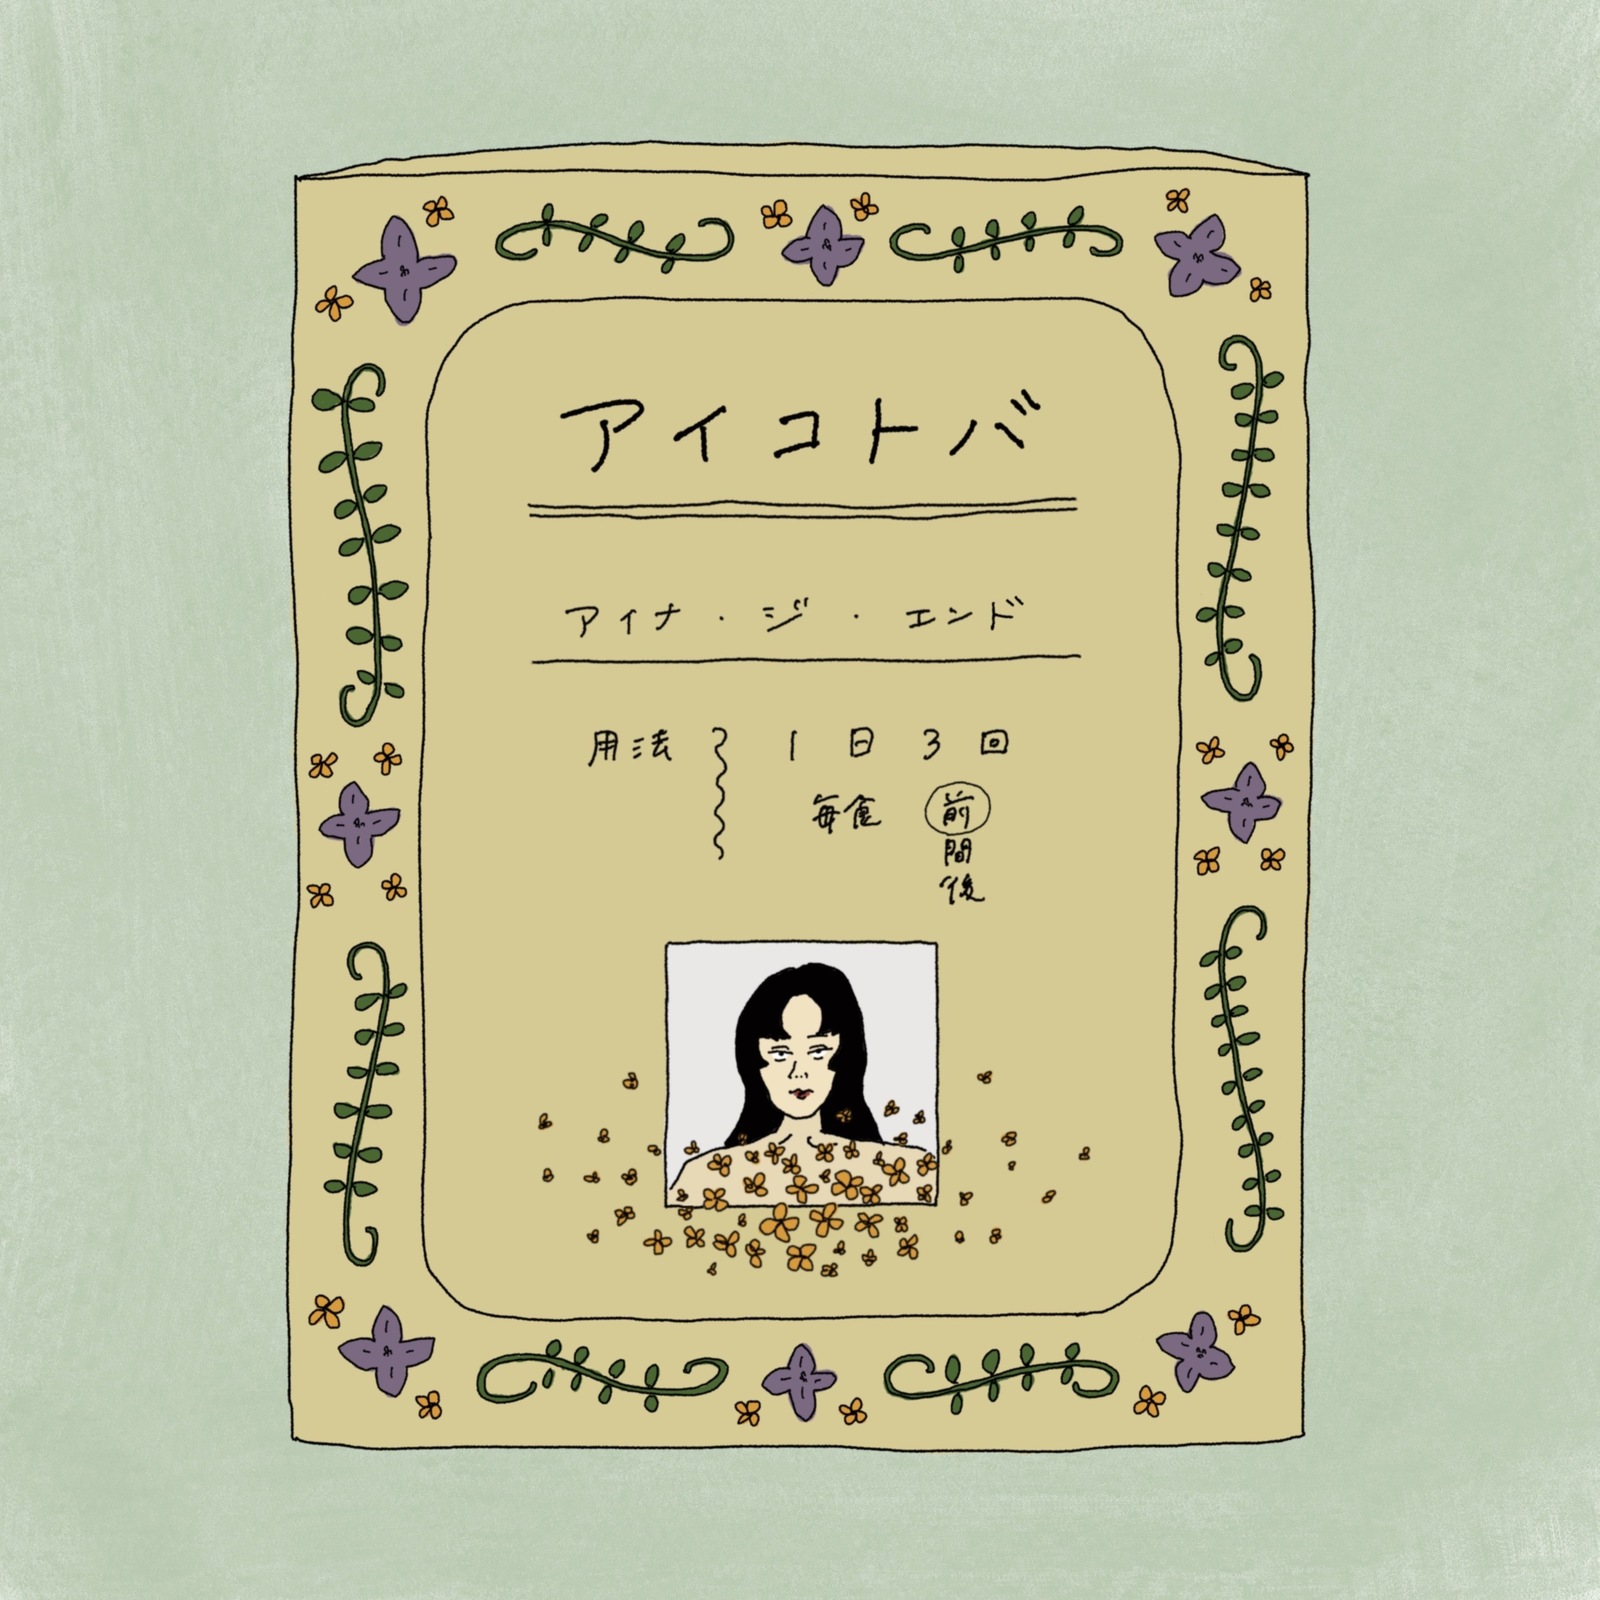 アイコトバ
アイナ・ジ・エンド
用法 1日3回
毎食 前
間
後